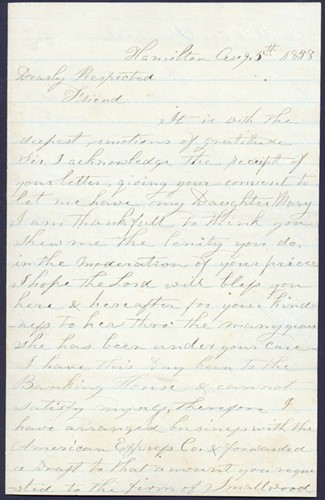 Hamilton Aug. 5th 1858
Dearly Respected
Friend
It is with the
deepest emotions of gratitude
Sir, I acknowledge the receipt of
your letter, giving your consent to
let me have my Daughter Mary
I am thankfull to think you
shew me the lenity you do,
in the moderation of your price
I hope the Lord will bless you
here & hereafter for your kind-
ness to her thro the many years
she has been under your care
I have this day been to the
Banking House & cannot
satisfy myself, therefore I
have arranged business with the
American Express Co. & forwarded
a Draft to that amount you reque-
sted to the firm of Smallwood